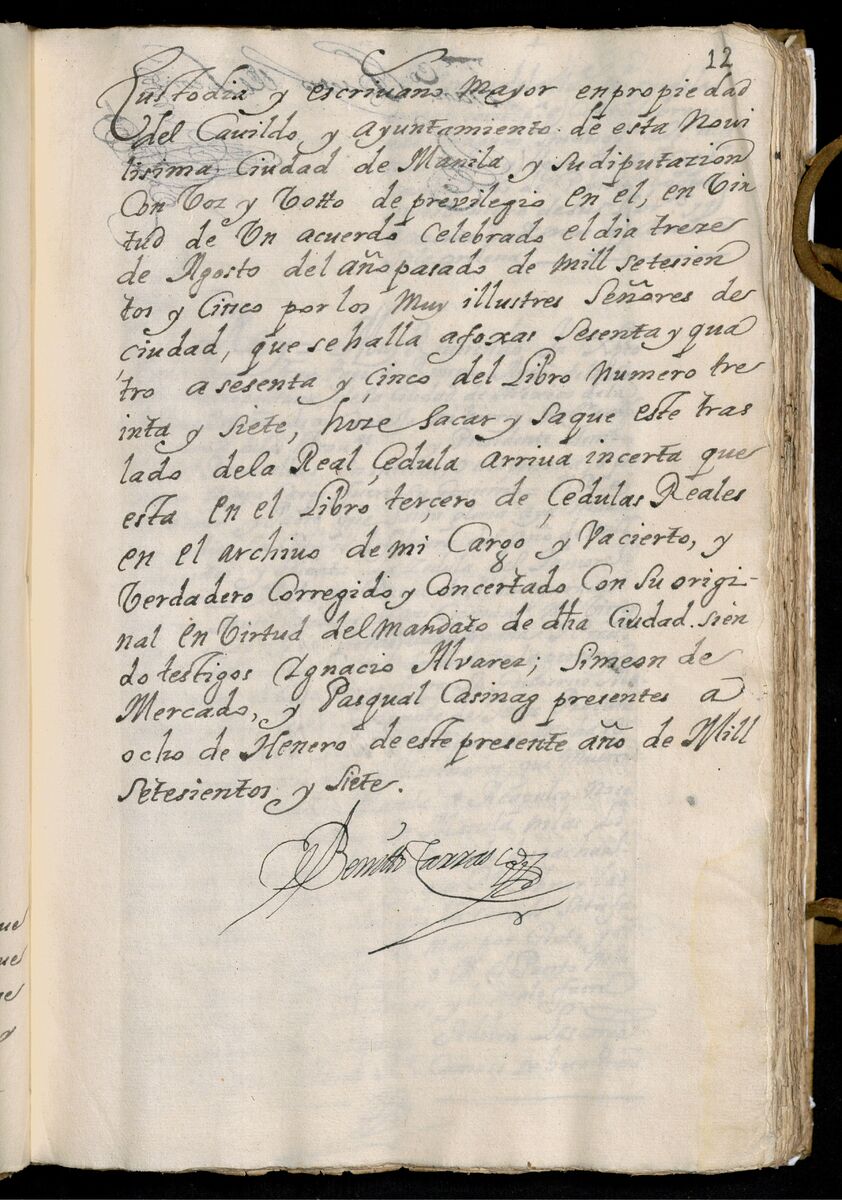 12
Custodia y escriuano Mayor enpropiedad
del Cauildo y Ayuntamiento de esta Novi
lisima Ciudad de Manila y sudiputazion
Con Voz y Votto de previlegio en el, en Vir
tud de Vn acuerdo Celebrado el dia treze
de Agosto del año pasado de mill setesien
tos y Cinco por los Muy illustres Señores de
ciudad, que se halla afoxas Sesenta y qua
tro a sesenta y cinco del Libro Numero tre
inta y siete, hize sacar y saque este tras
lado dela Real Çedula arriua incerta que
esta en el Libro terçero de Çedulas Reales
en el archiuo de mi Cargo y Va cierto, y
Verdadero Corregido y Concertado Con su origi-
nal en Virtud del Mandato de dha Ciudad. sien
do testigos Ygnacio Alvarez; Simeon de
Mercado, y Pasqual Casinag presentes a
ocho de Henero de este presente año de Mill
setesientos y siete.
Benitto Carrasco